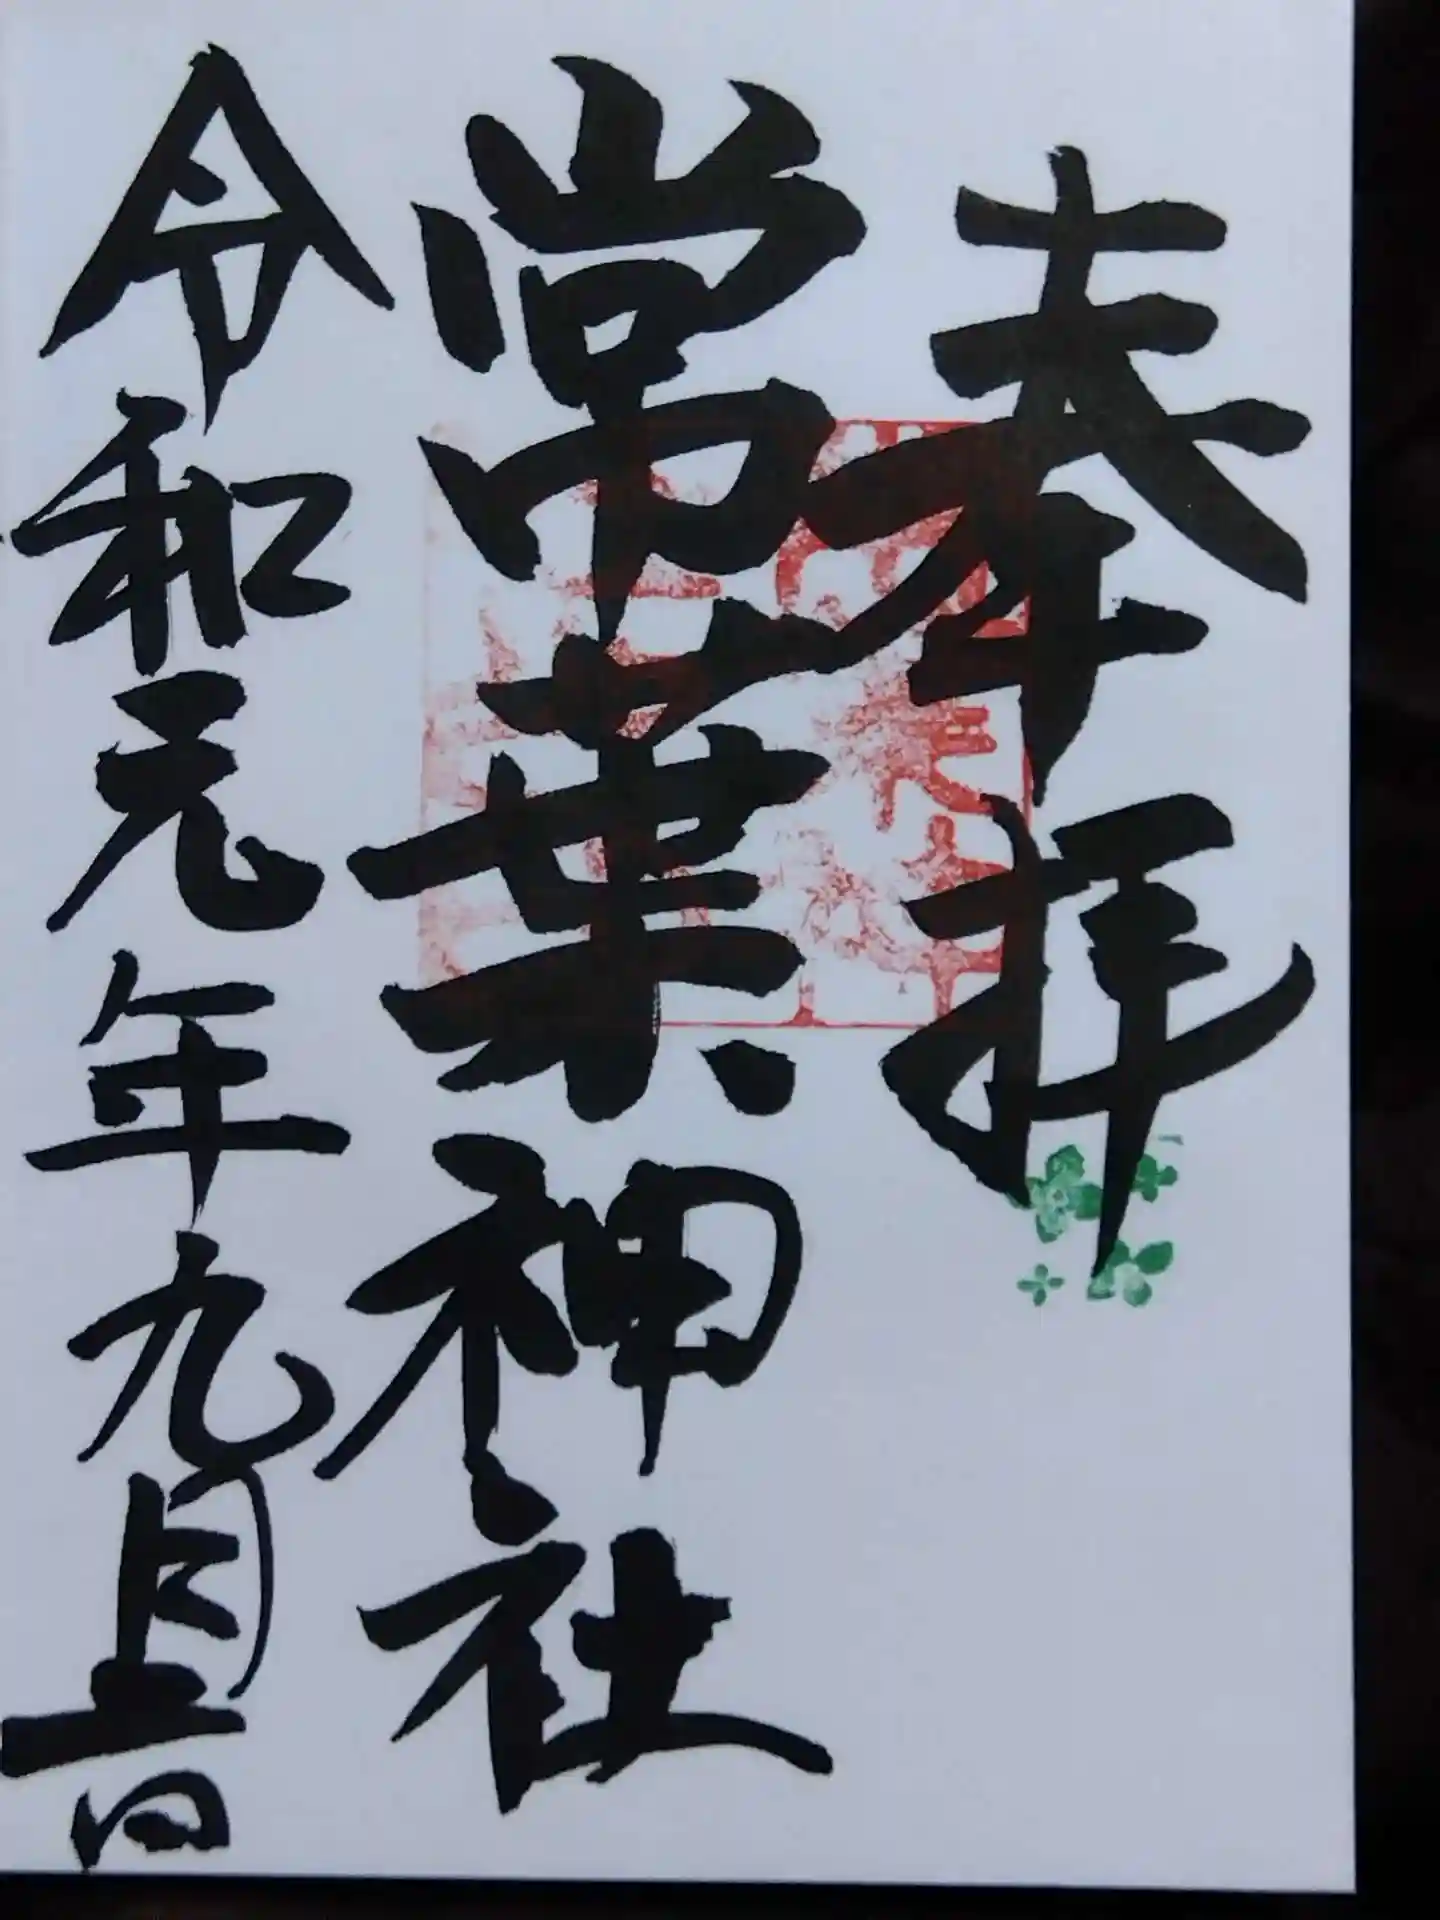 奉拝
常葉神社
令和元年九月